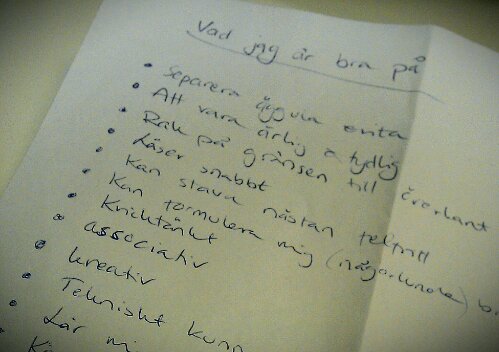 Vad jag är bra på
• Separera äggvita
• Att vara ärlig & tydlig
• Rak på gränsen till överkant
• Läser snabbt
• Kan stava nästan felfritt
• Kan formulera mig (någorlunda)
• Knicktänkt
• associativ
• kreativ
• Tekniskt kunn
• Lär mi